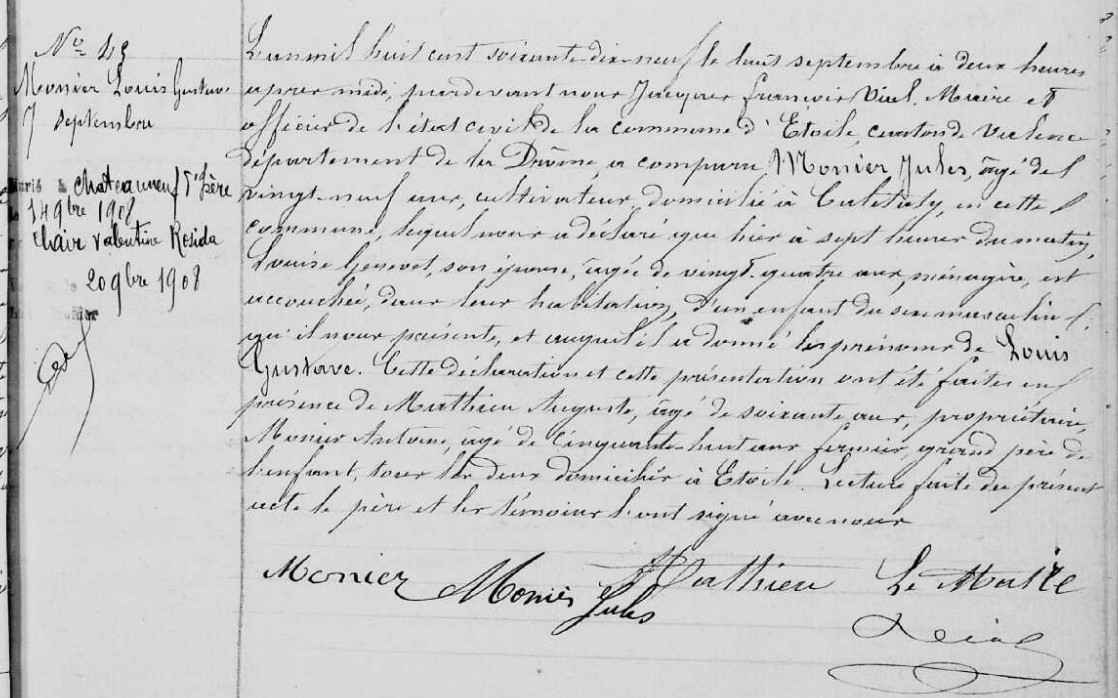 No 43
Monier Louis Gustave
7 septembre
Marié à Chateauneuf d'Isère
le 14 9bre 1908
Claire Valentine Rosida
20 9bre 1908
L'an mil huit cent soixante-dix-neuf le huit septembre à deux heures
après midi, pardevant nous Jacques François Vial, Maire et
officier de l'état civil de la commune d'Etoile, canton de Valence
département de la Drôme, a comparu Monier Jules, âgé de
vingt-neuf ans, cultivateur, domicilié à en cette
commune, lequel nous a déclaré que hier à sept heures du matin,
Louise Genevet, son épouse, âgée de vingt-quatre ans, ménagère, est
accouchée, dans leur habitation, d'un enfant du sexe masculin
qu'il nous présente, et auquel il a donné les prénoms de Louis
Gustave. Cette déclaration et cette présentation ont été faites en
présence de Mathieu Auguste, âgé de soixante ans, propriétaire,
Monier Antoine, âgé de Cinquante-huit ans fermier, grand père de
l'enfant, tous les deux domiciliés à Etoile. Lecture faite du présent
acte le père et les témoins l'ont signé avec nous
Monier Monier Jules Mathieu Le Maire
Vial